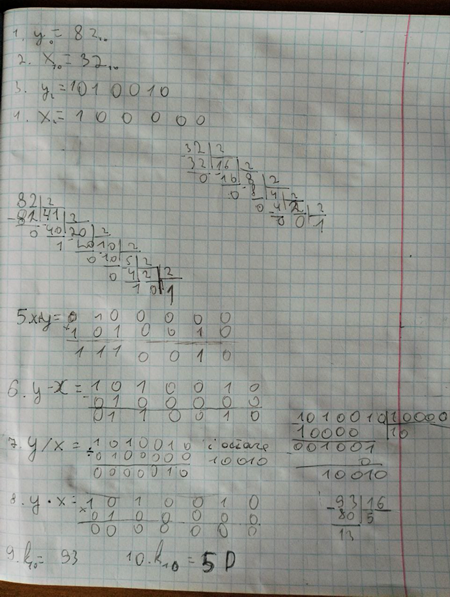 1. y₁₀ = 82₁₀
2. x₁₀ = 32₁₀
3. y₂ = 1010010
4. x₂ = 100000
32|2
32|16|2
0 16|8|2
0 8|4|2
0 4|2|2
0 0|1
82|2
-82|41|2
0 40|20|2
1 20|10|2
0 10|5|2
0 4|2|2
1 0|1
5 x+y = 0 1 0 0 0 0 0
+ 1 0 1 0 0 1 0
1 1 1 0 0 1 0
6. y-x = 1 0 1 0 0 1 0
0 1 0 0 0 0 0
0 1 1 0 0 1 0
1010010|10000
10000|10
001001
0
10010
7. y/x = 1 0 1 0 0 1 0
÷ 0 1 0 0 0 0 0
0 0 0 0 0 1 0
10010
8. y · x = 1 0 1 0 0 1 0
× 0 1 0 0 0 0 0
0 0 0 0 0 0 0
-93|16
80|5
13
9. k₁₀ = 93
10. k₁₆ = 5D